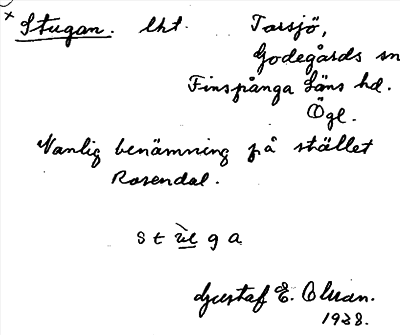 × Stugan. lht. Torsjö,
Godegårds sn
Finspånga Läns hd.
Ögl.
Vanlig benämning på stället
Rosendal.
st ga
Gustaf E.
1938.